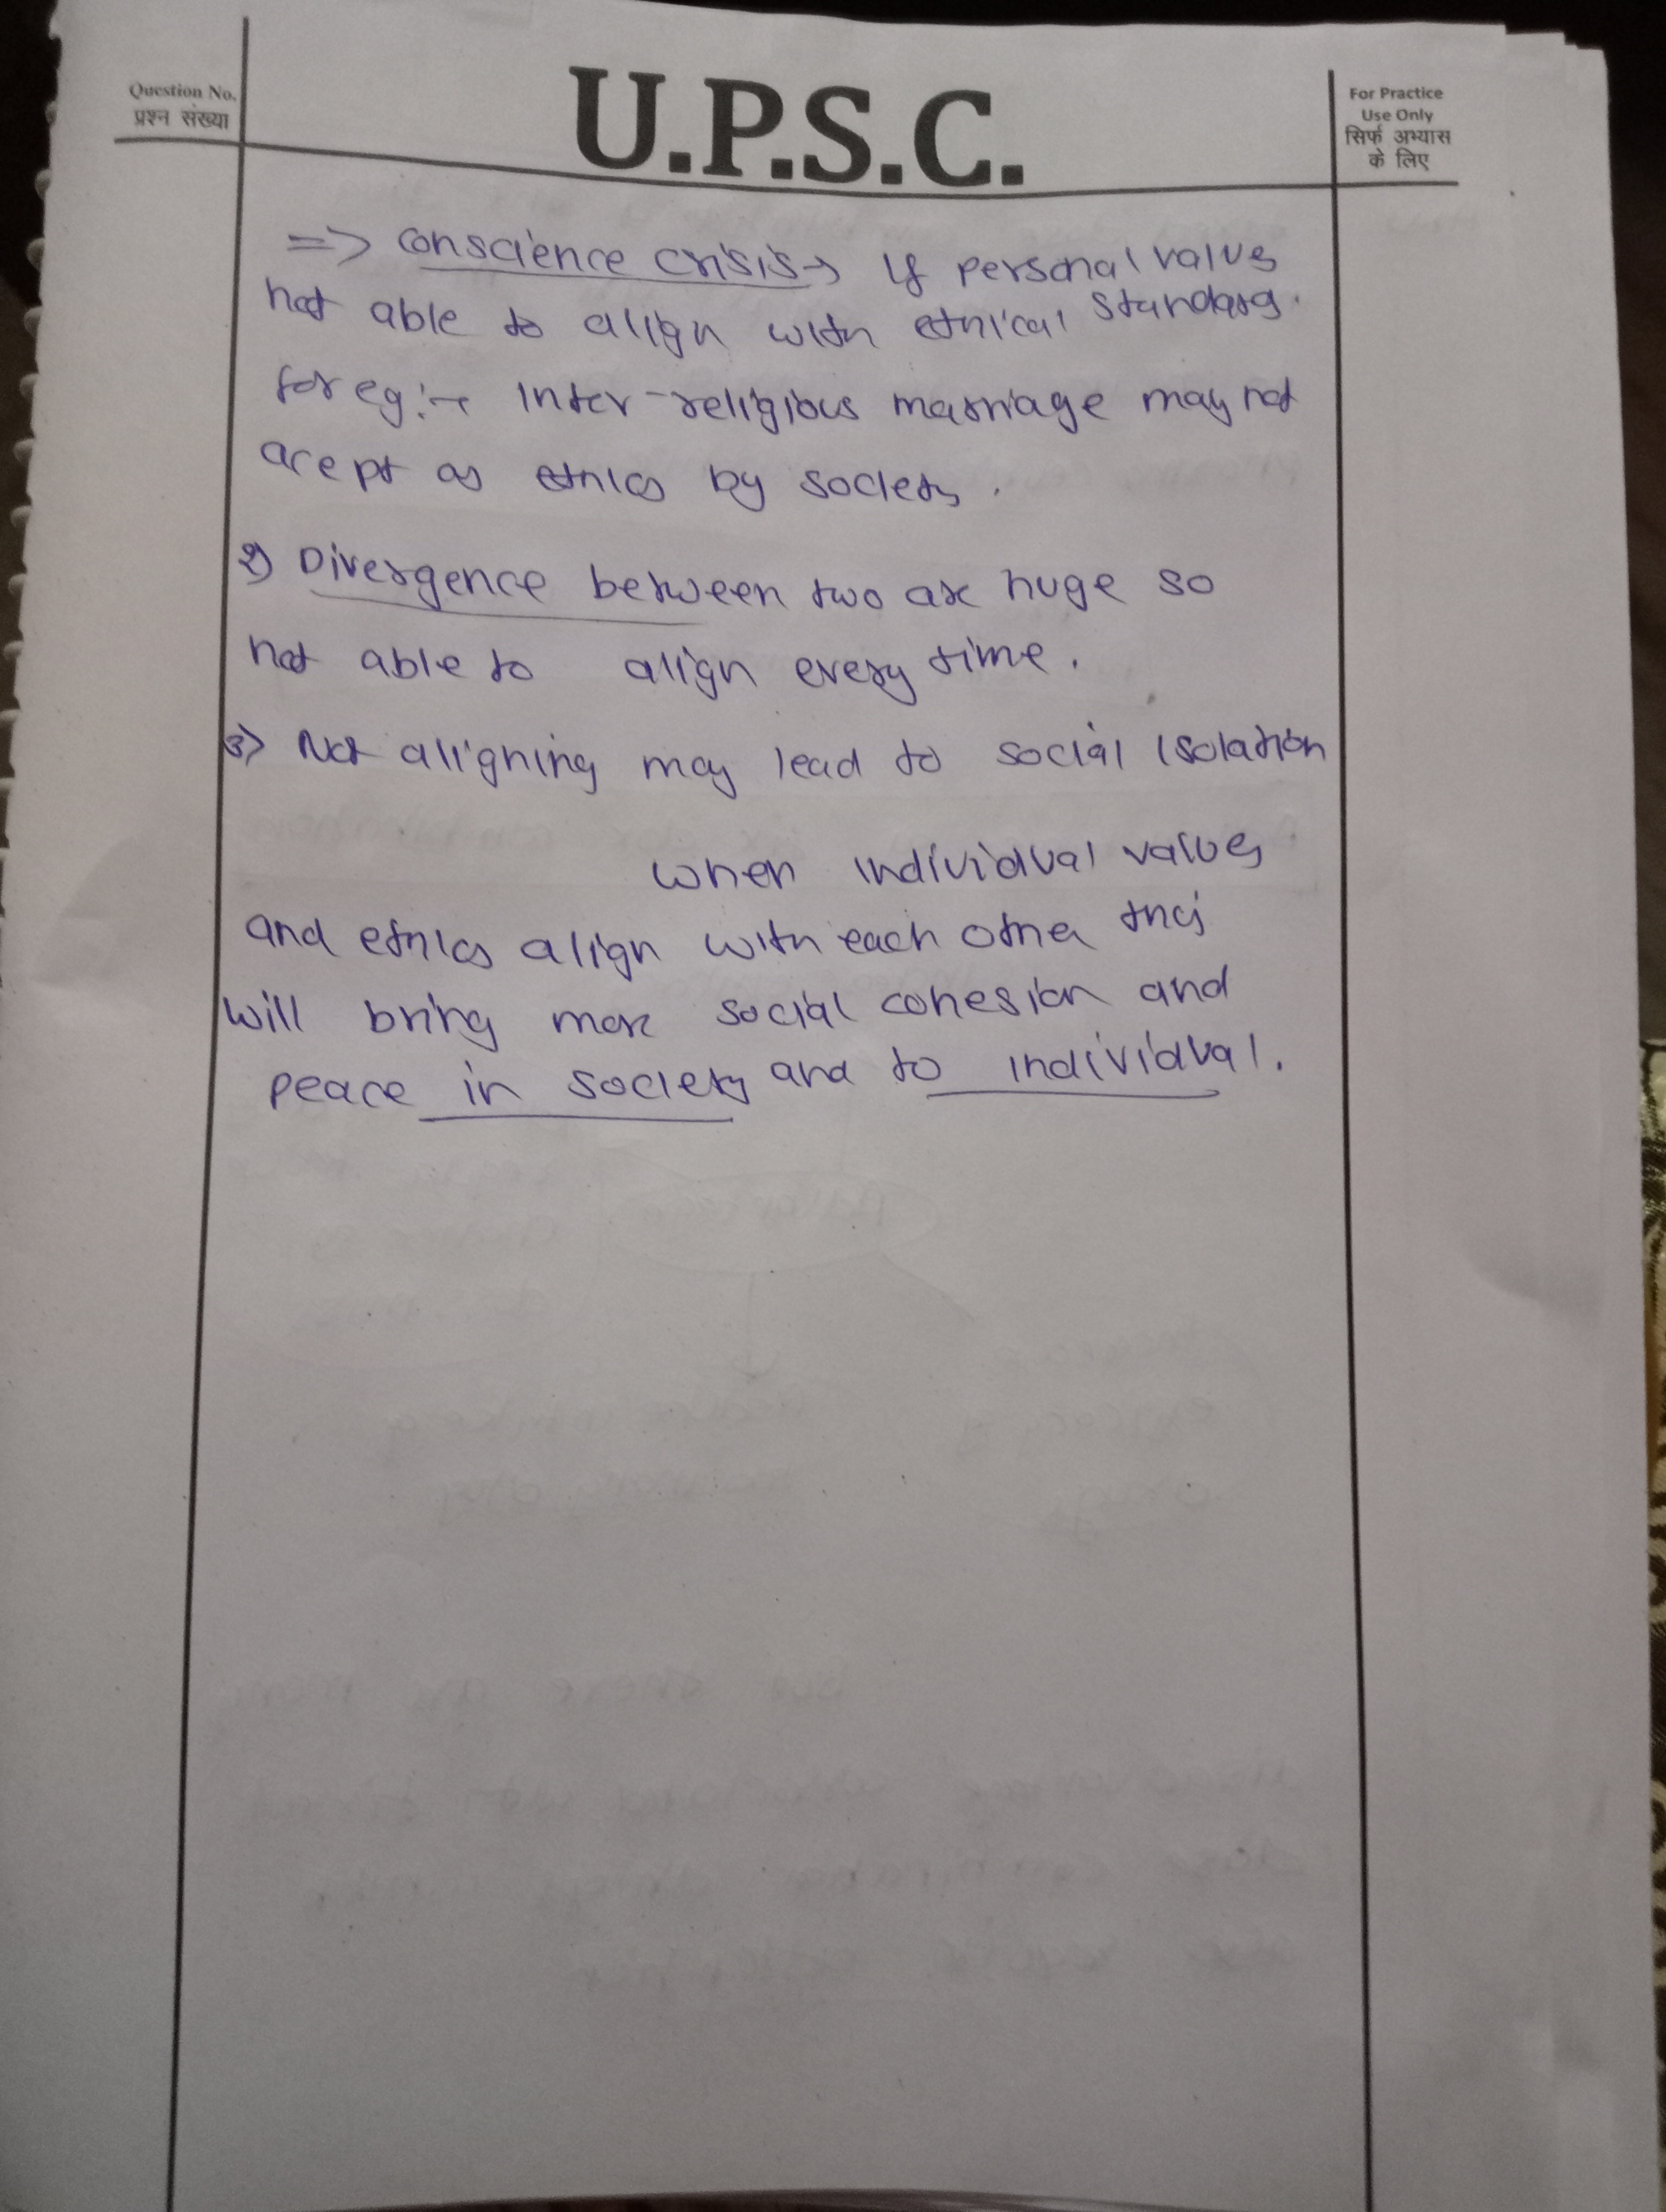 Question No.
प्रश्न संख्या
U.P.S.C.
For Practice
Use Only
सिर्फ अभ्यास
के लिए
=> conscience crisis → If personal values
not able to align with ethical standards.
for eg:→ Inter-religious marriage may not
acept as ethics by society.
2) Divergence between two are huge so
not able to align every time.
3) Not aligning may lead to social isolation
when individual values
and ethics align with each other
will bring more social cohesion and
peace in society and to individual.